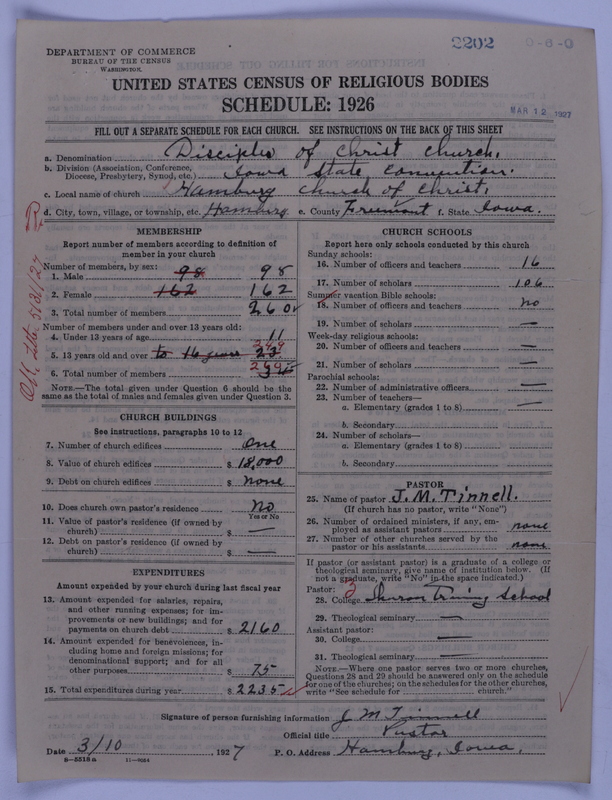 2202 0-6-0
DEPARTMENT OF COMMERCE
BUREAU OF THE CENSUS
WASHINGTON
UNITED STATES CENSUS OF RELIGIOUS BODIES
SCHEDULE: 1926
MAR 12 1927
FILL OUT A SEPARATE SCHEDULE FOR EACH CHURCH. SEE INSTRUCTIONS ON THE BACK OF THIS SHEET
a. Denomination Disciples of Christ Church.
b. Division (Association, Conference, Diocese, Presbytery, Synod, etc.) Iowa State Convention.
c. Local name of church Hamburg Church of Christ,
d. City, town, village, or township, etc. Hamburg e. County Freemont f. State Iowa.
MEMBERSHIP
Report number of members according to definition of member in your church
Number of members, by sex:
1. Male 98 98
2. Female 162 162
3. Total number of members 260
Number of members under and over 13 years old:
4. Under 13 years of age 11
5. 13 years old and over to 16 years 23 249
6. Total number of members 260
NOTE.—The total given under Question 6 should be the same as the total of males and females given under Question 3.
CHURCH BUILDINGS
See instructions, paragraphs 10 to 12
7. Number of church edifices One
8. Value of church edifices $ 18,000
9. Debt on church edifices $ none
10. Does church own pastor's residence? No
Yes or No
11. Value of pastor's residence (if owned by church) $ —
12. Debt on pastor's residence (if owned by church) $ —
EXPENDITURES
Amount expended by your church during last fiscal year
13. Amount expended for salaries, repairs, and other running expenses; for improvements or new buildings; and for payments on church debt $ 2160
14. Amount expended for benevolences, including home and foreign missions; for denominational support; and for all other purposes $ 75
15. Total expenditures during year $ 2235
CHURCH SCHOOLS
Report here only schools conducted by this church
Sunday schools:
16. Number of officers and teachers 16
17. Number of scholars 106
Summer vacation Bible schools:
18. Number of officers and teachers no
19. Number of scholars —
Week-day religious schools:
20. Number of officers and teachers —
21. Number of scholars —
Parochial schools:
22. Number of administrative officers —
23. Number of teachers—
a. Elementary (grades 1 to 8) —
b. Secondary
24. Number of scholars—
a. Elementary (grades 1 to 8)
b. Secondary
PASTOR
25. Name of pastor J. M. Tinnell.
(If church has no pastor, write "None")
26. Number of ordained ministers, if any, employed as assistant pastors none
27. Number of other churches served by the pastor or his assistants none
If pastor (or assistant pastor) is a graduate of a college or theological seminary, give name of institution below. (If not a graduate, write "No" in the space indicated.)
Pastor: 3
28. College Training School
29. Theological seminary —
Assistant pastor:
30. College —
31. Theological seminary —
NOTE.—Where one pastor serves two or more churches, Questions 28 and 29 should be answered only on the schedule for one of the churches; on the schedules for the other churches, write "See schedule for church."
Signature of person furnishing information J M Tinnell
Official title Pastor
Date 3/10 1927 P. O. Address Hamburg, Iowa,
8—5518a 11—9064